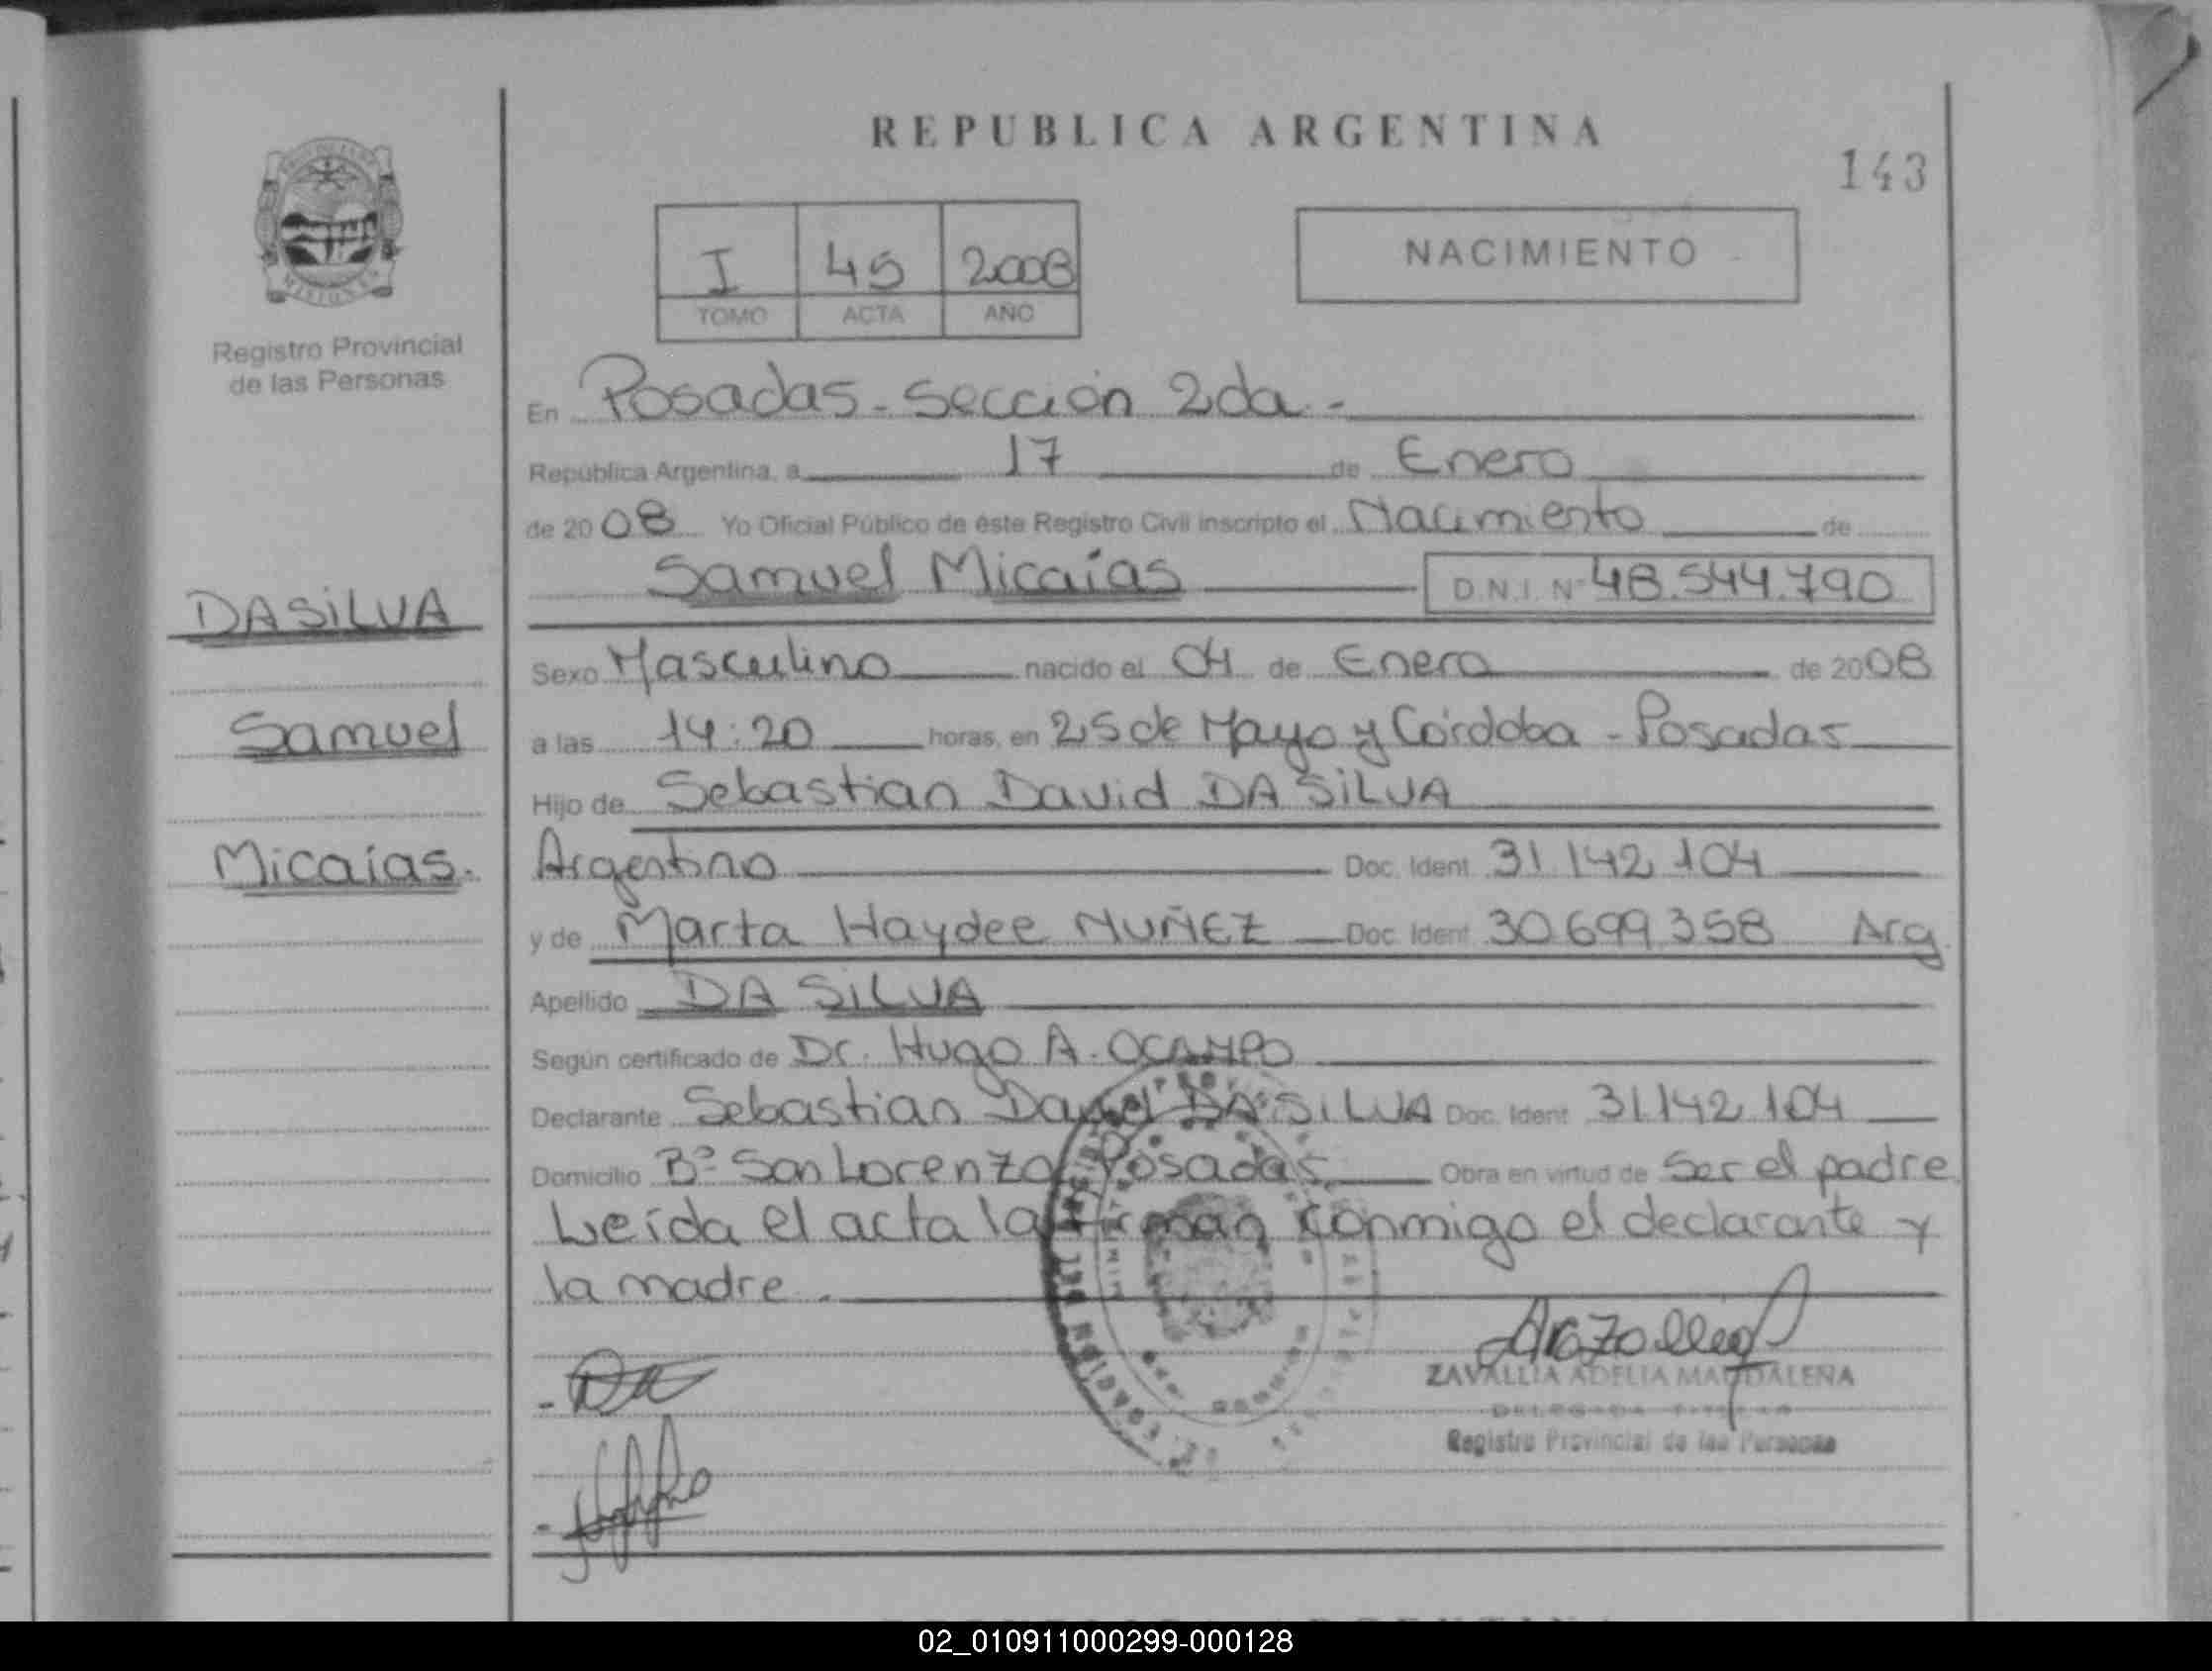 REPUBLICA ARGENTINA
143
I 45 2008
TOMO ACTA AÑO
NACIMIENTO
MISIONES
Registro Provincial
de las Personas
En Posadas - Sección 2da. -
República Argentina, a 17 de Enero
de 2008 Yo Oficial Público de éste Registro Civil inscripto el Nacimiento de
Samuel Micaías D.N.I. Nº 48.544.790
DA SILVA
Samuel
Micaías.
Sexo Masculino nacido el 04 de Enero de 2008
a las 14:20 horas, en 25 de Mayo y Córdoba - Posadas
Hijo de Sebastian David DA SILVA
Argentino Doc. Ident 31.142.104
y de Marta Haydee NUÑEZ Doc. Ident 30.699.358 Arg.
Apellido DA SILVA
Según certificado de Dr. Hugo A. OCAMPO
Declarante Sebastian DA SILVA Doc. Ident 31.142.104
Domicilio Bº San Lorenzo Posadas Obra en virtud de Ser el padre
Leída el acta la firman conmigo el declarante y
la madre.
ZAVALLIA ADELIA MAGDALENA
DELEGADA TITULAR
Registro Provincial de las Personas
02_010911000299-000128